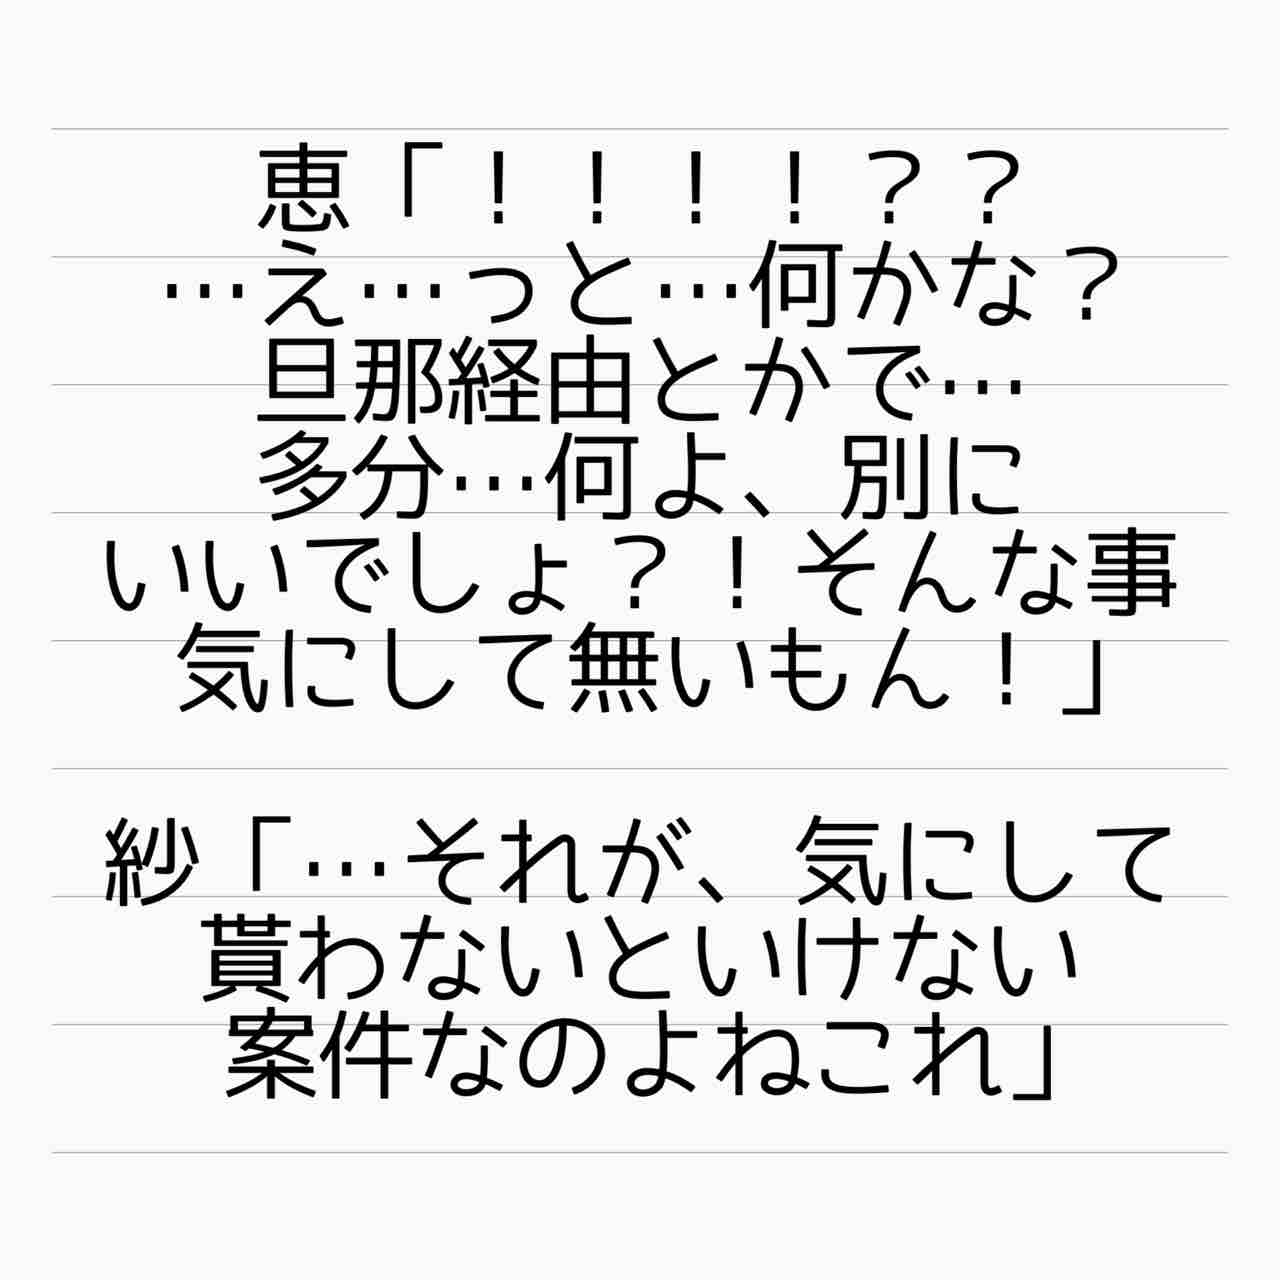 恵「！！！！？？
…え…っと…何かな？
旦那経由とかで…
多分…何よ、別に
いいでしょ？！そんな事
気にして無いもん！」
紗「…それが、気にして
貰わないといけない
案件なのよねこれ」